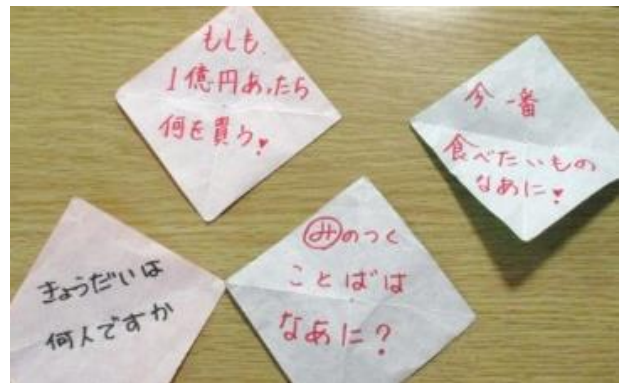 もしも
1億円あったら
何を買う♥
今一番
食べたいもの
なあに♥
きょうだいは
何人ですか
みのつく
ことばは
なあに?